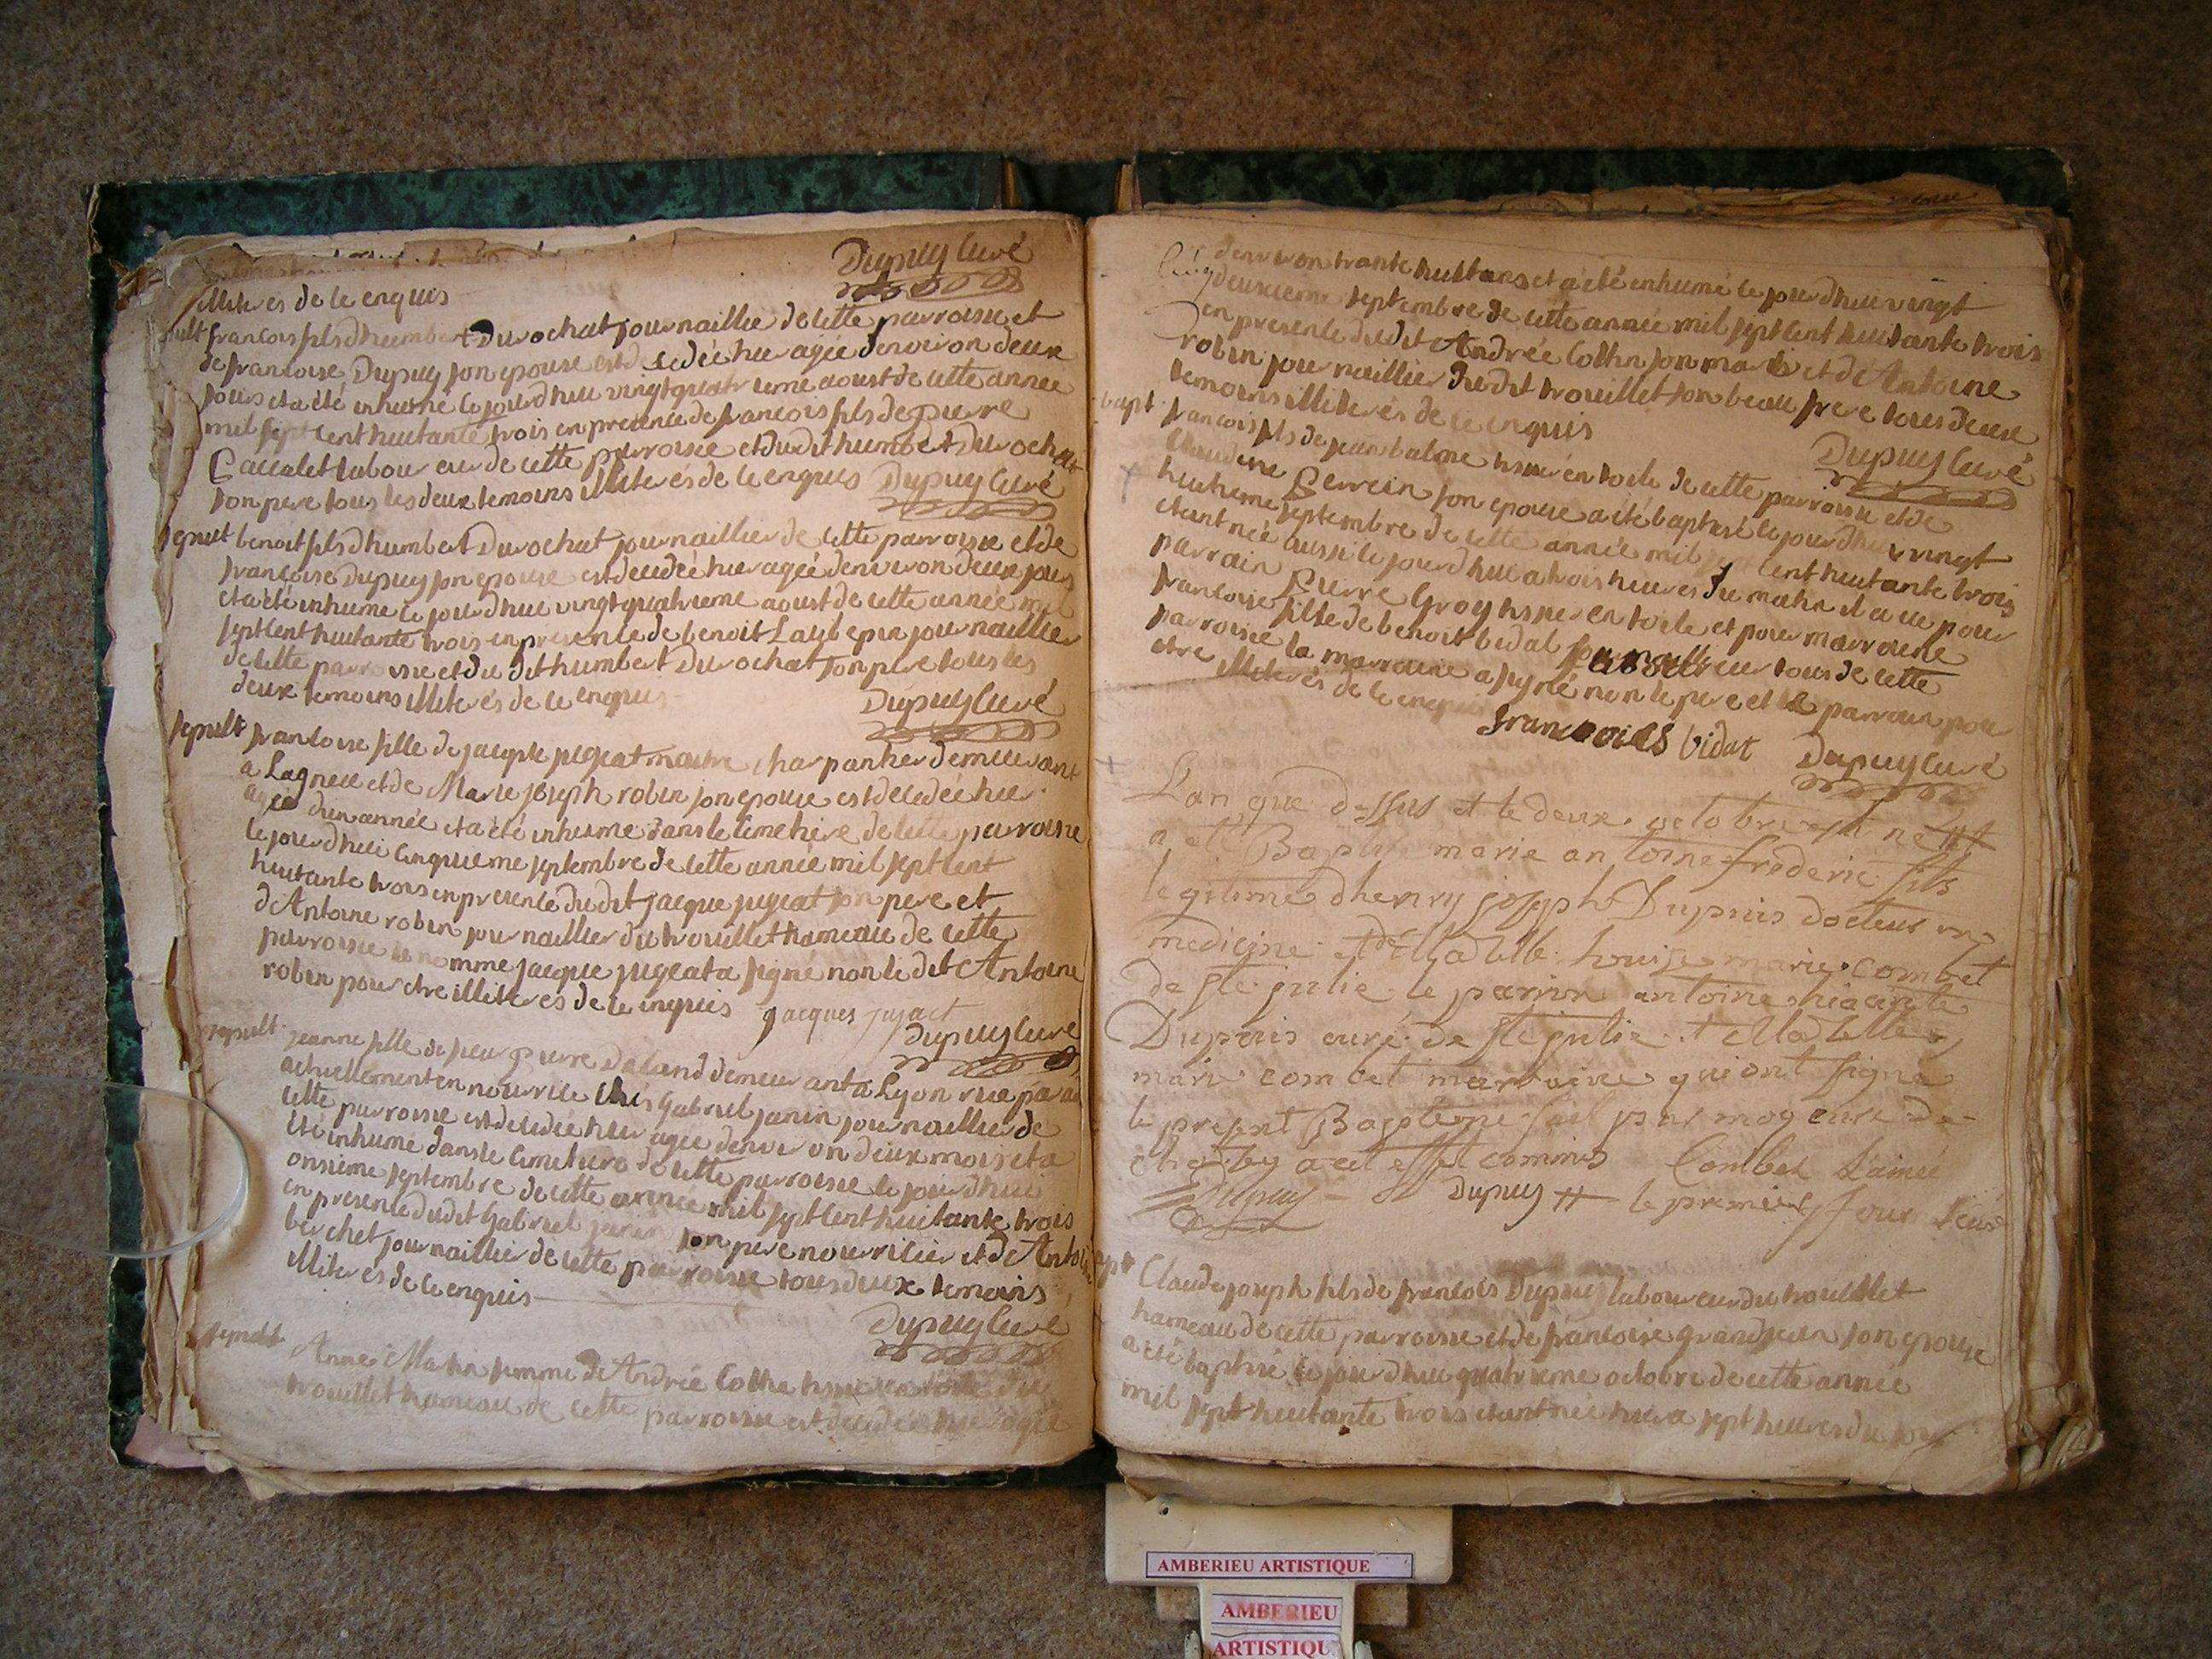 Dupuy Curé
illiterés de ce enquis
sepult francois fils dhumbert Durochat journaillier de cette parroisse et
de francoise Dupuy son epouse est decedée hier agée denviron deux
jours et a été inhumé ce jourdhui vingt quatrieme aoust de cette année
mil sept cent huitante trois en presence de francois fils de pierre
laboureur de cette parroisse et dudit humbert Durochat
son pere tous les deux temoins illiterés de ce enquis Dupuy Curé
sepult benoit fils dhumbert Durochat journaillier de cette parroisse et de
francoise Dupuy son epouse est decedée hier agée denviron deux jours
et a été inhumé ce jourdhui vingt quatrieme aoust de cette année mil
sept cent huitante trois en presence de benoit Laubepin journaillier
de cette parroisse et du dit humbert Durochat son pere tous les
deux temoins illiterés de ce enquis
Dupuy Curé
sepult francoise fille de jacque jujeat maitre charpantier demeurant
a Lagneu et de Marie joseph robin son epouse est decedée hier
agée dun année et a été inhumé dans le cimetiere de cette parroisse
le jourdhui cinquieme septembre de cette année mil sept cent
huitante trois en presence dudit jacque jujeat son pere et
dAntoine robin journaillier du trouillet hameau de cette
parroisse le nomme jacque jugeat a signé non le dit Antoine
robin pour etre illiteres de ce inquis jacques jujact
Dupuy Curé
sepult jeanne fille de feu pierre Daland demeurant a Lyon rue
actuellement en nourrice chés Gabriel janin journaillier de
cette parroisse est decedée hier agée denviron deux mois et a
été inhumé dans le cimetiere de cette parroisse le jourdhui
onsieme septembre de cette année mil sept cent huitante trois
en presence dudit Gabriel janin son pere nourricier et de Antoine
berchet journaillier de cette parroisse tous deux temoins
illiterés de ce enquis
Dupuy Curé
sepult Anne Matin femme de Andrée Cottin tisseur en toile du
trouillet hameau de cette parroisse est decedée hier agée
denviron trante huit ans et a été inhumé le jourdhui vingt
deuxieme septembre de cette année mil sept cent huitante trois
en presence dudit Andrée Cottin son mari et dAntoine
robin journaillier du dit trouillet son beau frere tous deux
temoins illiterés de ce inquis
Dupuy Curé
bapt francois fils de jean balme tisseur en toile de cette parroisse et de
Claudine perrein son epouse a été baptisé le jourdhui vingt
huitieme septembre de cette année mil sept cent huitante trois
etant née aussi le jourdhui a trois heures du matin il a eu pour
parrain pierre Groy tisseur en toile et pour marraine
francoise fille de benoit bidal tous de cette
parroisse la marraine a signé non le pere et le parrain pour
etre illiterés de ce enquis
francoises bidat Dupuy Curé
L'an que dessus et le deux octobre est né et
a eté Baptisé marie antoine frederic fils
legitime dhenry joseph Dupuis docteur en
medicine et de Madelle Louise marie combet
de ste julie le parrin antoine hiacinte
Dupuis curé de ste julie et Madelle
marie combet marraine qui ont signe
le present Bapteme fait par moy curé de
a cet effet commis Combet L'ainée
Dupuy Dupuy le premier
Claude joseph fils de francois Dupuy laboureur du trouillet
hameau de cette parroisse et de francoise grandjean son epouse
a été baptisé le jourdhui quatrieme octobre de cette année
mil sept huitante trois etant née hier a sept heures du
AMBERIEU ARTISTIQUE
AMBERIEU
ARTISTIQU